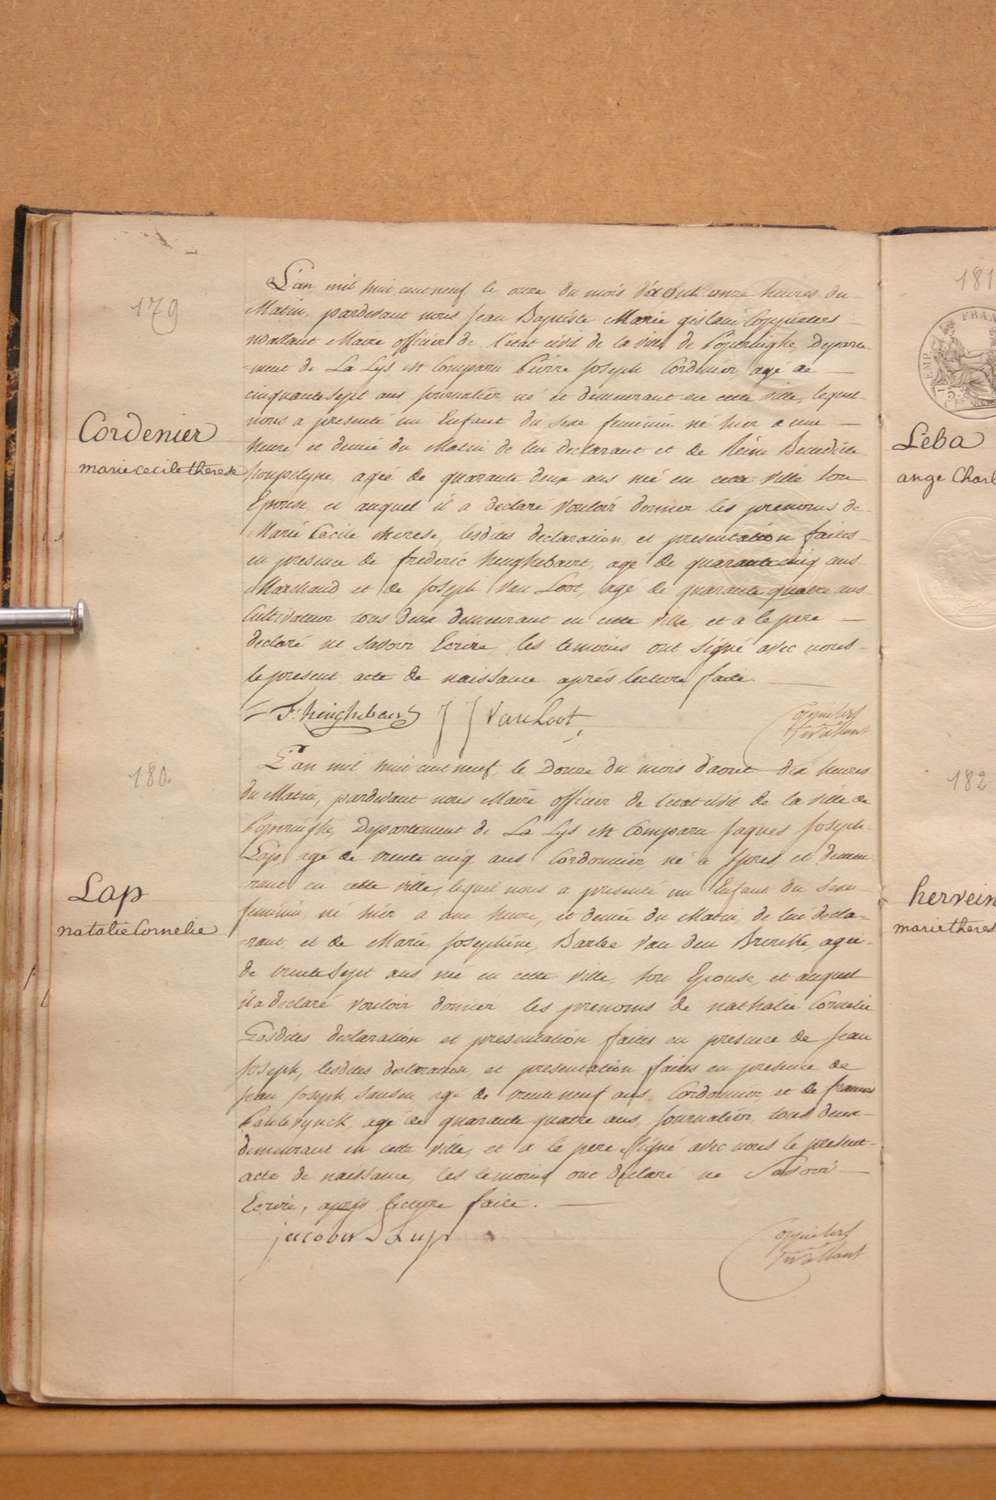 179
Cordenier
marie cecile therese
L'an mil huit cent neuf le onze du mois d'aout onze heures du
Matin, pardevant nous Jean Baptiste Marie gislain
Maire officier de l'etat civil de la ville de Poperinghe, Departe
-ment de La Lys est Comparu Pierre Joseph Cordenier agé de
cinquante sept ans journalier né et demeurant en cette ville, lequel
nous a presenté un Enfant du sexe feminin né hier a une
heure et demie du Matin de lui declarant et de Reine Benedicte
agée de quarante deux ans née en cette ville son
Epouse, et auquel il a declaré vouloir donner les prenoms de
Marie Cecile therese, lesdites declaration et presentation faites
en presence de frederic henghebaert, agé de quarante cinq ans
Marchand et de Joseph Van Loot, agé de quarante quatre ans
Cultivateur tous deux demeurant en cette ville et a le pere
declaré ne savoir Ecrire les temoins ont signé avec nous
le present acte de naissance après lecture faite
F. henghebaert J J Van Loot
180
Lap
natalie Cornelie
L'an mil huit cent neuf le Douze du mois d'aout dix heures
du Matin, pardevant nous Maire officier de l'etat civil de la ville de
Poperinghe, Departement de La Lys est Comparu Jaques Joseph
Lap, agé de trente cinq ans Cordonnier né a Ypres et demeu
-rant en cette ville, lequel nous a presenté un Enfant du sexe
feminin, né hier a une heure, et demie du Matin, de lui decla-
-rant, et de Marie, Josephine, Barbe Van den Broucke, agée
de trente sept ans née en cette ville, son Epouse, et auquel
il a declaré vouloir donner les prenoms de nathalie Cornelie
Lesdites declaration et presentation faites en presence de Jean
Joseph, lesdites declaration, et presentation faites en presence de
Jean Joseph agé de trente neuf ans Cordonnier, et de francois
agé de quarante quatre ans, journalier tous deux
demeurant en cette ville, et a le pere signé avec nous le present
acte de naissance, les temoins ont declaré ne Savoir
Ecrire, après lecture faite.
181
Leba
ange Charl
182
hervein
marie theres